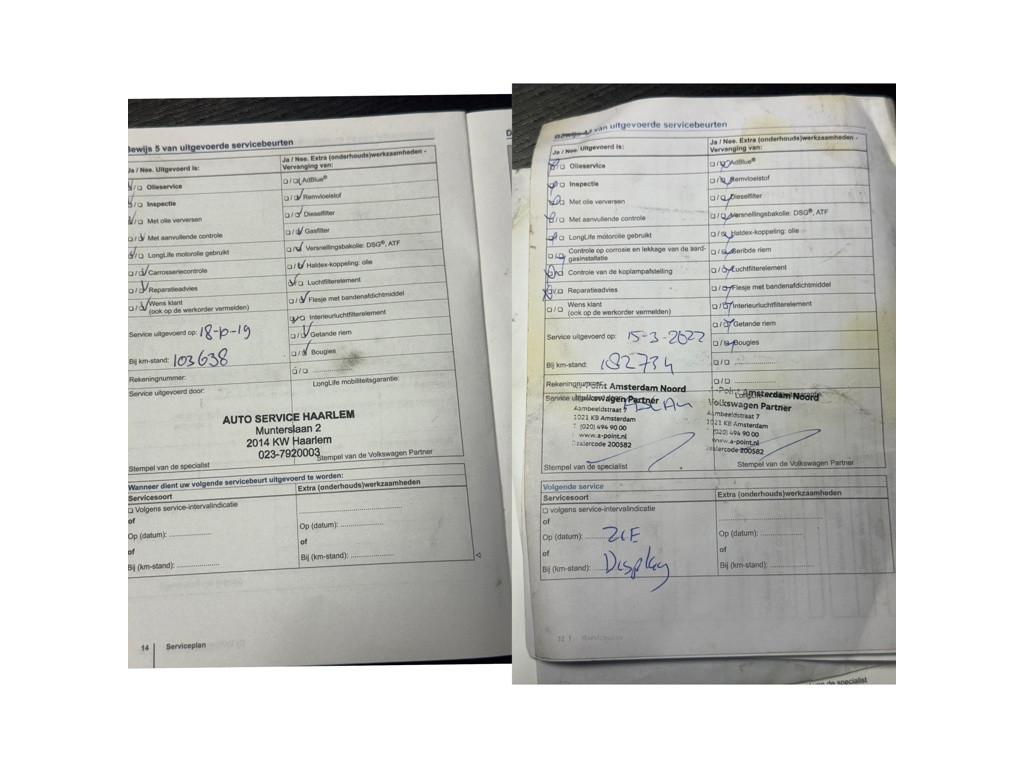 Bewijs 5 van uitgevoerde servicebeurten
Ja / Nee. Uitgevoerd is:
Ja / Nee. Extra (onderhouds)werkzaamheden - Vervanging van:
Olieservice
AdBlue®
Inspectie
Remvloeistof
Met olie verversen
Dieselfilter
Met aanvullende controle
Gasfilter
LongLife motorolie gebruikt
Versnellingsbakolie: DSG®, ATF
Carrosseriecontrole
Haldex-koppeling: olie
Reparatieadvies
Luchtfilterelement
Wens klant
(ook op de werkorder vermelden)
Flesje met bandenafdichtmiddel
Interieurluchtfilterelement
Service uitgevoerd op: 18-10-19
Getande riem
Bij km-stand: 103638
Bougies
Rekeningnummer:
Service uitgevoerd door:
LongLife mobiliteitsgarantie:
AUTO SERVICE HAARLEM
Munterslaan 2
2014 KW Haarlem
023-7920003
Stempel van de specialist
Stempel van de Volkswagen Partner
Wanneer dient uw volgende servicebeurt uitgevoerd te worden:
Servicesoort
Extra (onderhouds)werkzaamheden
Volgens service-intervalindicatie
of
Op (datum):
Op (datum):
of
of
Bij (km-stand):
Bij (km-stand):
14 | Serviceplan
van uitgevoerde servicebeurten
Ja / Nee. Uitgevoerd is:
Ja / Nee. Extra (onderhouds)werkzaamheden -
Vervanging van:
Olieservice
AdBlue®
Inspectie
Remvloeistof
Met olie verversen
Dieselfilter
Met aanvullende controle
Versnellingsbakolie: DSG®, ATF
LongLife motorolie gebruikt
Haldex-koppeling: olie
Controle op corrosie en lekkage van de aard-
gasinstallatie
Geribde riem
Controle van de koplampafstelling
Luchtfilterelement
Reparatieadvies
Flesje met bandenafdichtmiddel
Wens klant
(ook op de werkorder vermelden)
Interieurluchtfilterelement
Getande riem
Service uitgevoerd op: 15-3-2022
Bougies
Bij km-stand: 182734
Rekeningnummer:
A-Point Amsterdam Noord
Volkswagen Partner
Aambeeldstraat 7
1021 KB Amsterdam
T (020) 494 90 00
www.a-point.nl
Dealercode 200582
A-Point Amsterdam Noord
Volkswagen Partner
Aambeeldstraat 7
1021 KB Amsterdam
(020) 494 90 00
www.a-point.nl
Dealercode 200582
Stempel van de specialist
Stempel van de Volkswagen Partner
Volgende service
Servicesoort
Extra (onderhouds)werkzaamheden
volgens service-intervalindicatie
of
Op (datum): ZIE
Op (datum):
of
of
Bij (km-stand): Display
Bij (km-stand):
van de specialist